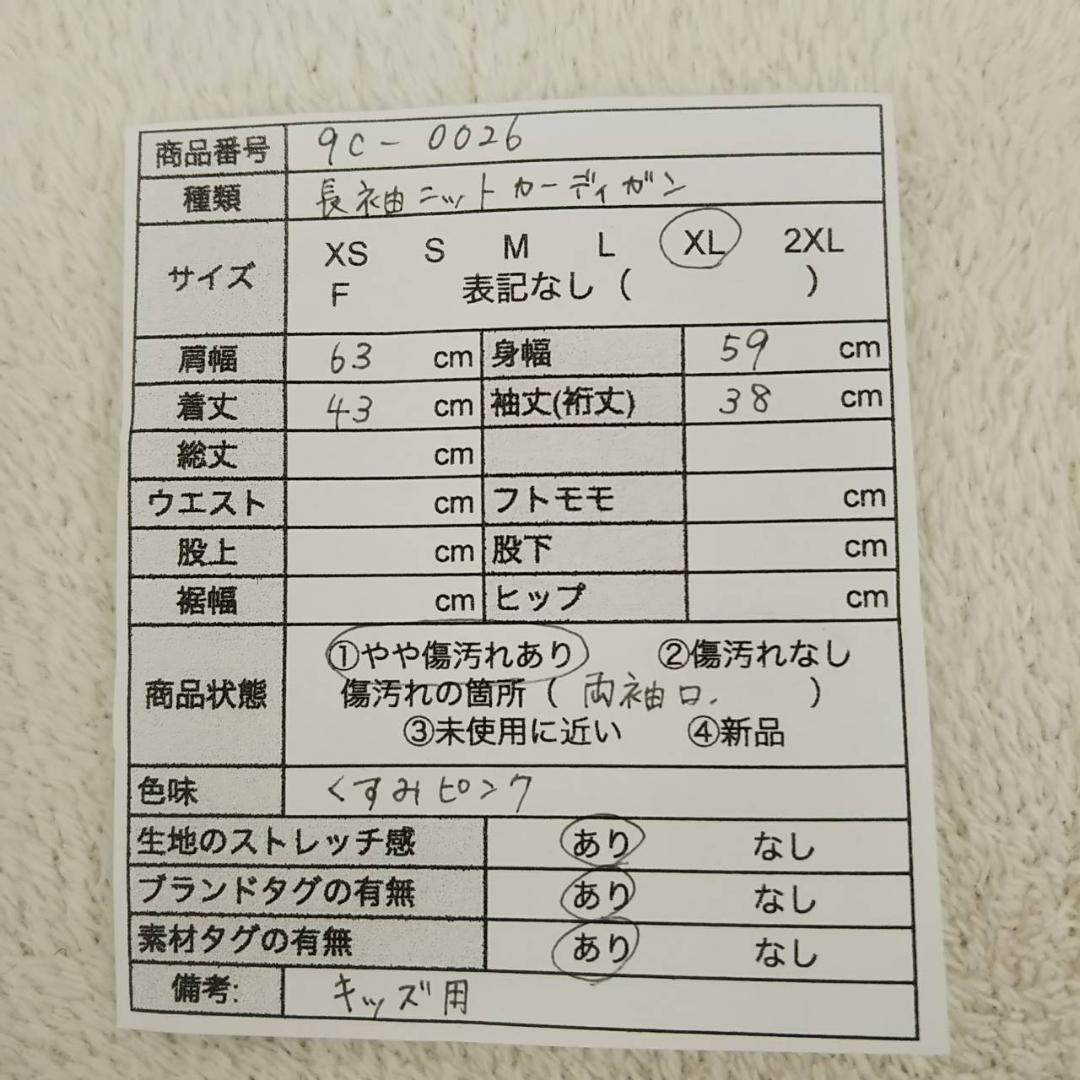 商品番号 9C-0026
種類 長袖ニットカーディガン
サイズ XS S M L XL 2XL
F 表記なし ( )
肩幅 63 cm 身幅 59 cm
着丈 43 cm 袖丈(裄丈) 38 cm
総丈 cm
ウエスト cm フトモモ cm
股上 cm 股下 cm
裾幅 cm ヒップ cm
商品状態 ①やや傷汚れあり ②傷汚れなし
傷汚れの箇所 ( 両袖口. )
③未使用に近い ④新品
色味 くすみピンク
生地のストレッチ感 あり なし
ブランドタグの有無 あり なし
素材タグの有無 あり なし
備考: キッズ用